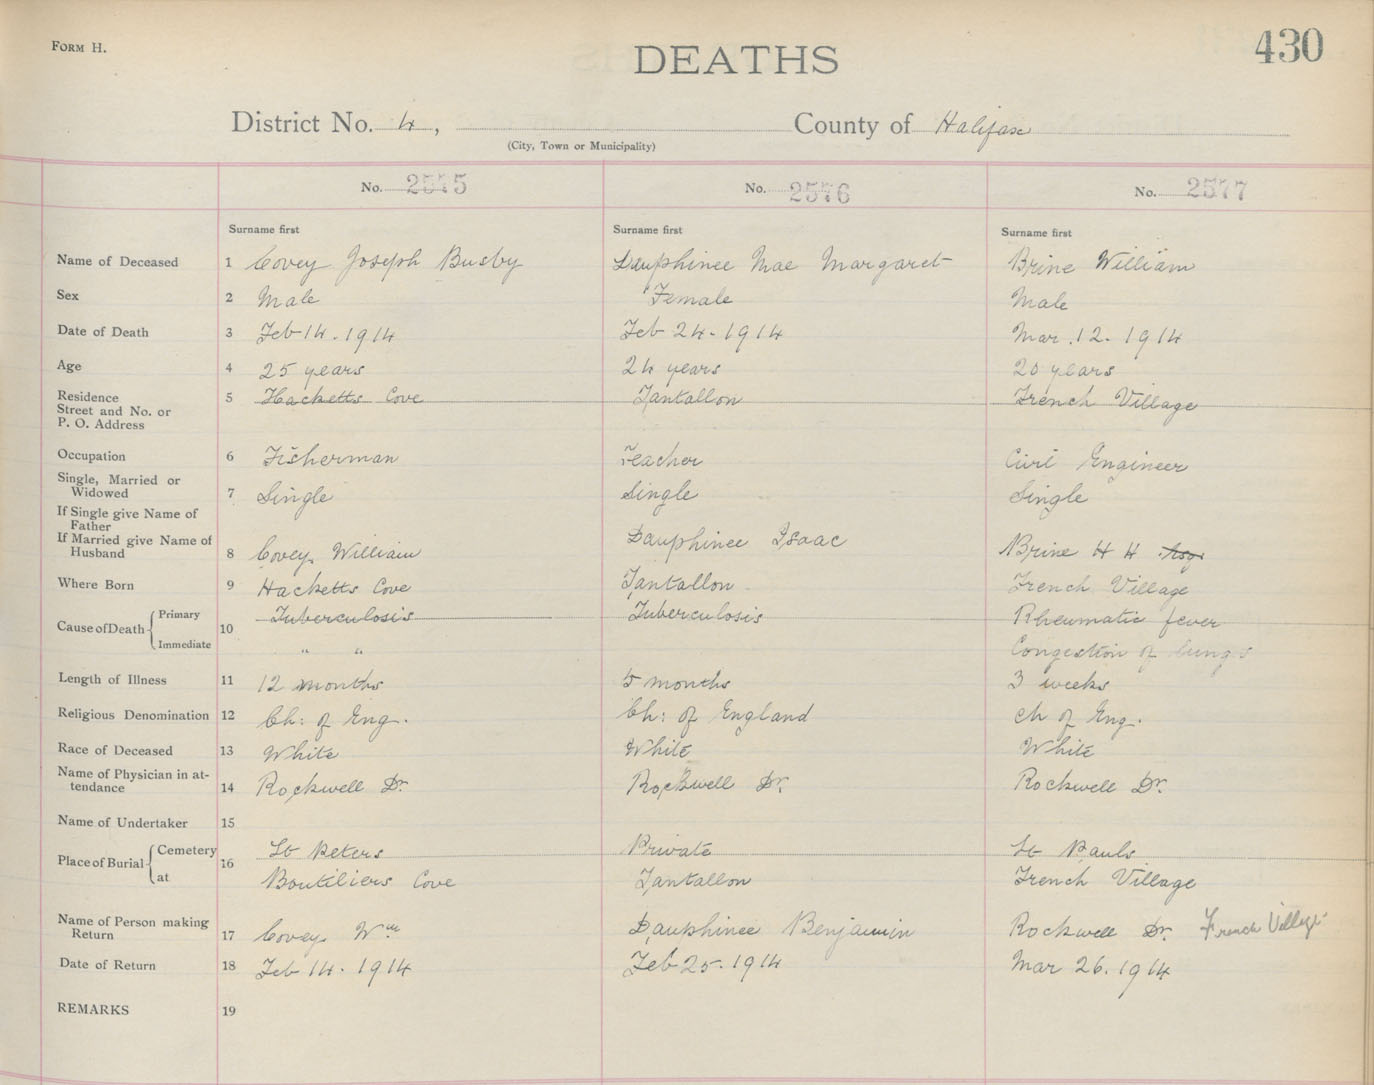 FORM H.
DEATHS
430
District No. 4, County of Halifax
(City, Town or Municipality)
No. 2575 No. 2576 No. 2577
Surname first Surname first Surname first
Name of Deceased 1 Covey Joseph Busby Dauphinee Mae Margaret Brine William
Sex 2 Male Female Male
Date of Death 3 Feb 14. 1914 Feb 24. 1914 Mar. 12. 1914
Age 4 25 years 24 years 20 years
Residence 5 Hacketts Cove Tantallon French Village
Street and No. or
P. O. Address
Occupation 6 Fisherman Teacher Civil Engineer
Single, Married or
Widowed 7 Single Single Single
If Single give Name of
Father
If Married give Name of
Husband 8 Covey William Dauphinee Isaac Brine H H Esq
Where Born 9 Hacketts Cove Tantallon French Village
Cause of Death Primary 10 Tuberculosis Tuberculosis Rheumatic fever
Immediate " " Congestion of lungs
Length of Illness 11 12 months 5 months 3 weeks
Religious Denomination 12 Ch: of Eng. Ch: of England Ch of Eng.
Race of Deceased 13 White White White
Name of Physician in at-
tendance 14 Rockwell Dr. Rockwell Dr. Rockwell Dr.
Name of Undertaker 15
Place of Burial Cemetery 16 St Peters Private St Pauls
at Boutiliers Cove Tantallon French Village
Name of Person making
Return 17 Covey Wm Dauphinee Benjamin Rockwell Dr. French Village
Date of Return 18 Feb 14. 1914 Feb 25. 1914 Mar 26. 1914
REMARKS 19